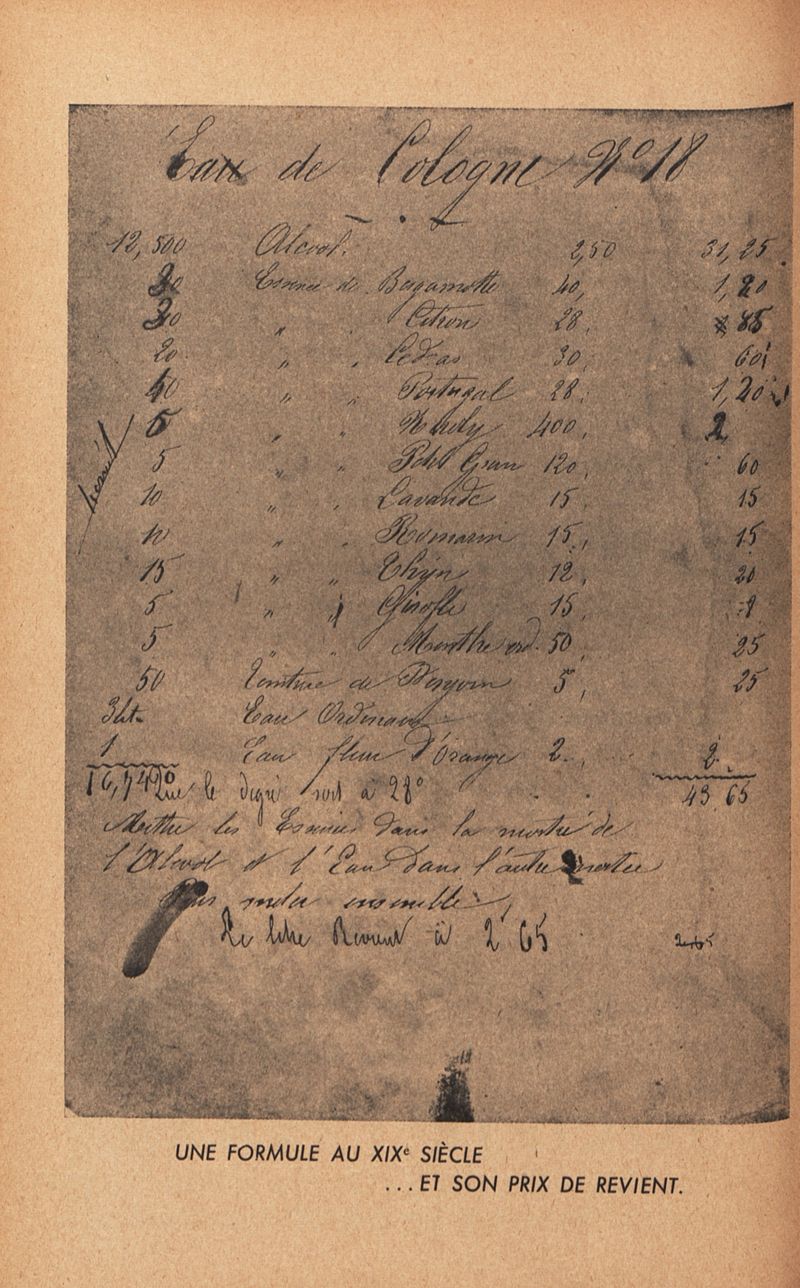 Eau de Cologne No 18
12,500 Alcool. 2,50 31,25
30 Essence de Bergamotte 40, 1,20
30 " " Citron 28, 85
20 " " Cédras 30, 60
40 " " Portugal 28, 1,20
5 " " Néroly 400, 2
5 " " Petit Grain 120, 60
10 " " Lavande 15, 15
10 " " Romarin 15, 15
15 " " Thym 12, 20
5 " " Girofle 15,
5 " " Menthe 50, 25
50 Teinture de Benjoin 5, 25
3 lit. Eau Ordinaire
1 Eau fleur d'Orange 2, 2
43 65
Que le degré soit à 28°
Mettre les Essences dans la moitié de
l'Alcool et l'Eau dans l'autre moitié
Puis meler ensemble,
Le litre Revient à 2 65 2,65
UNE FORMULE AU XIXe SIÈCLE
...ET SON PRIX DE REVIENT.